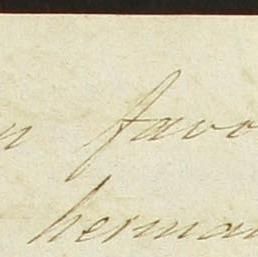 n favo
herma